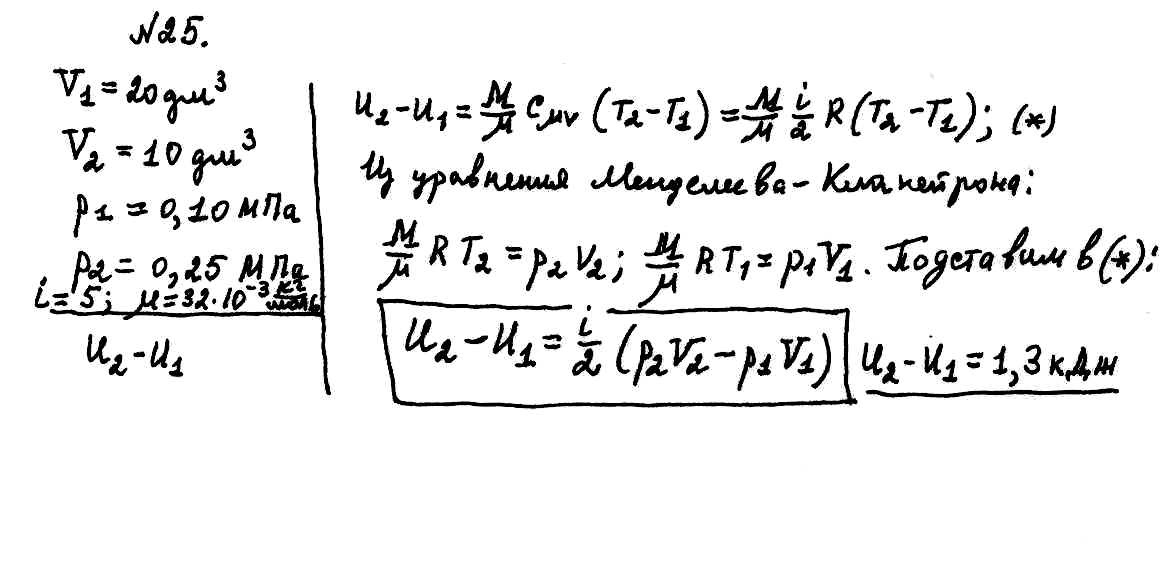 №25.
V₁ = 20 дм³
V₂ = 10 дм³
p₁ = 0,10 МПа
p₂ = 0,25 МПа
i = 5; μ = 32·10⁻³ кг/моль
U₂ - U₁
U₂ - U₁ = M/μ Cμv (T₂ - T₁) = M/μ i/2 R (T₂ - T₁); (*)
Из уравнения Менделеева - Клапейрона:
M/μ R T₂ = p₂ V₂; M/μ R T₁ = p₁ V₁. Подставим в (*):
U₂ - U₁ = i/2 (p₂V₂ - p₁V₁) U₂ - U₁ = 1,3 кДж